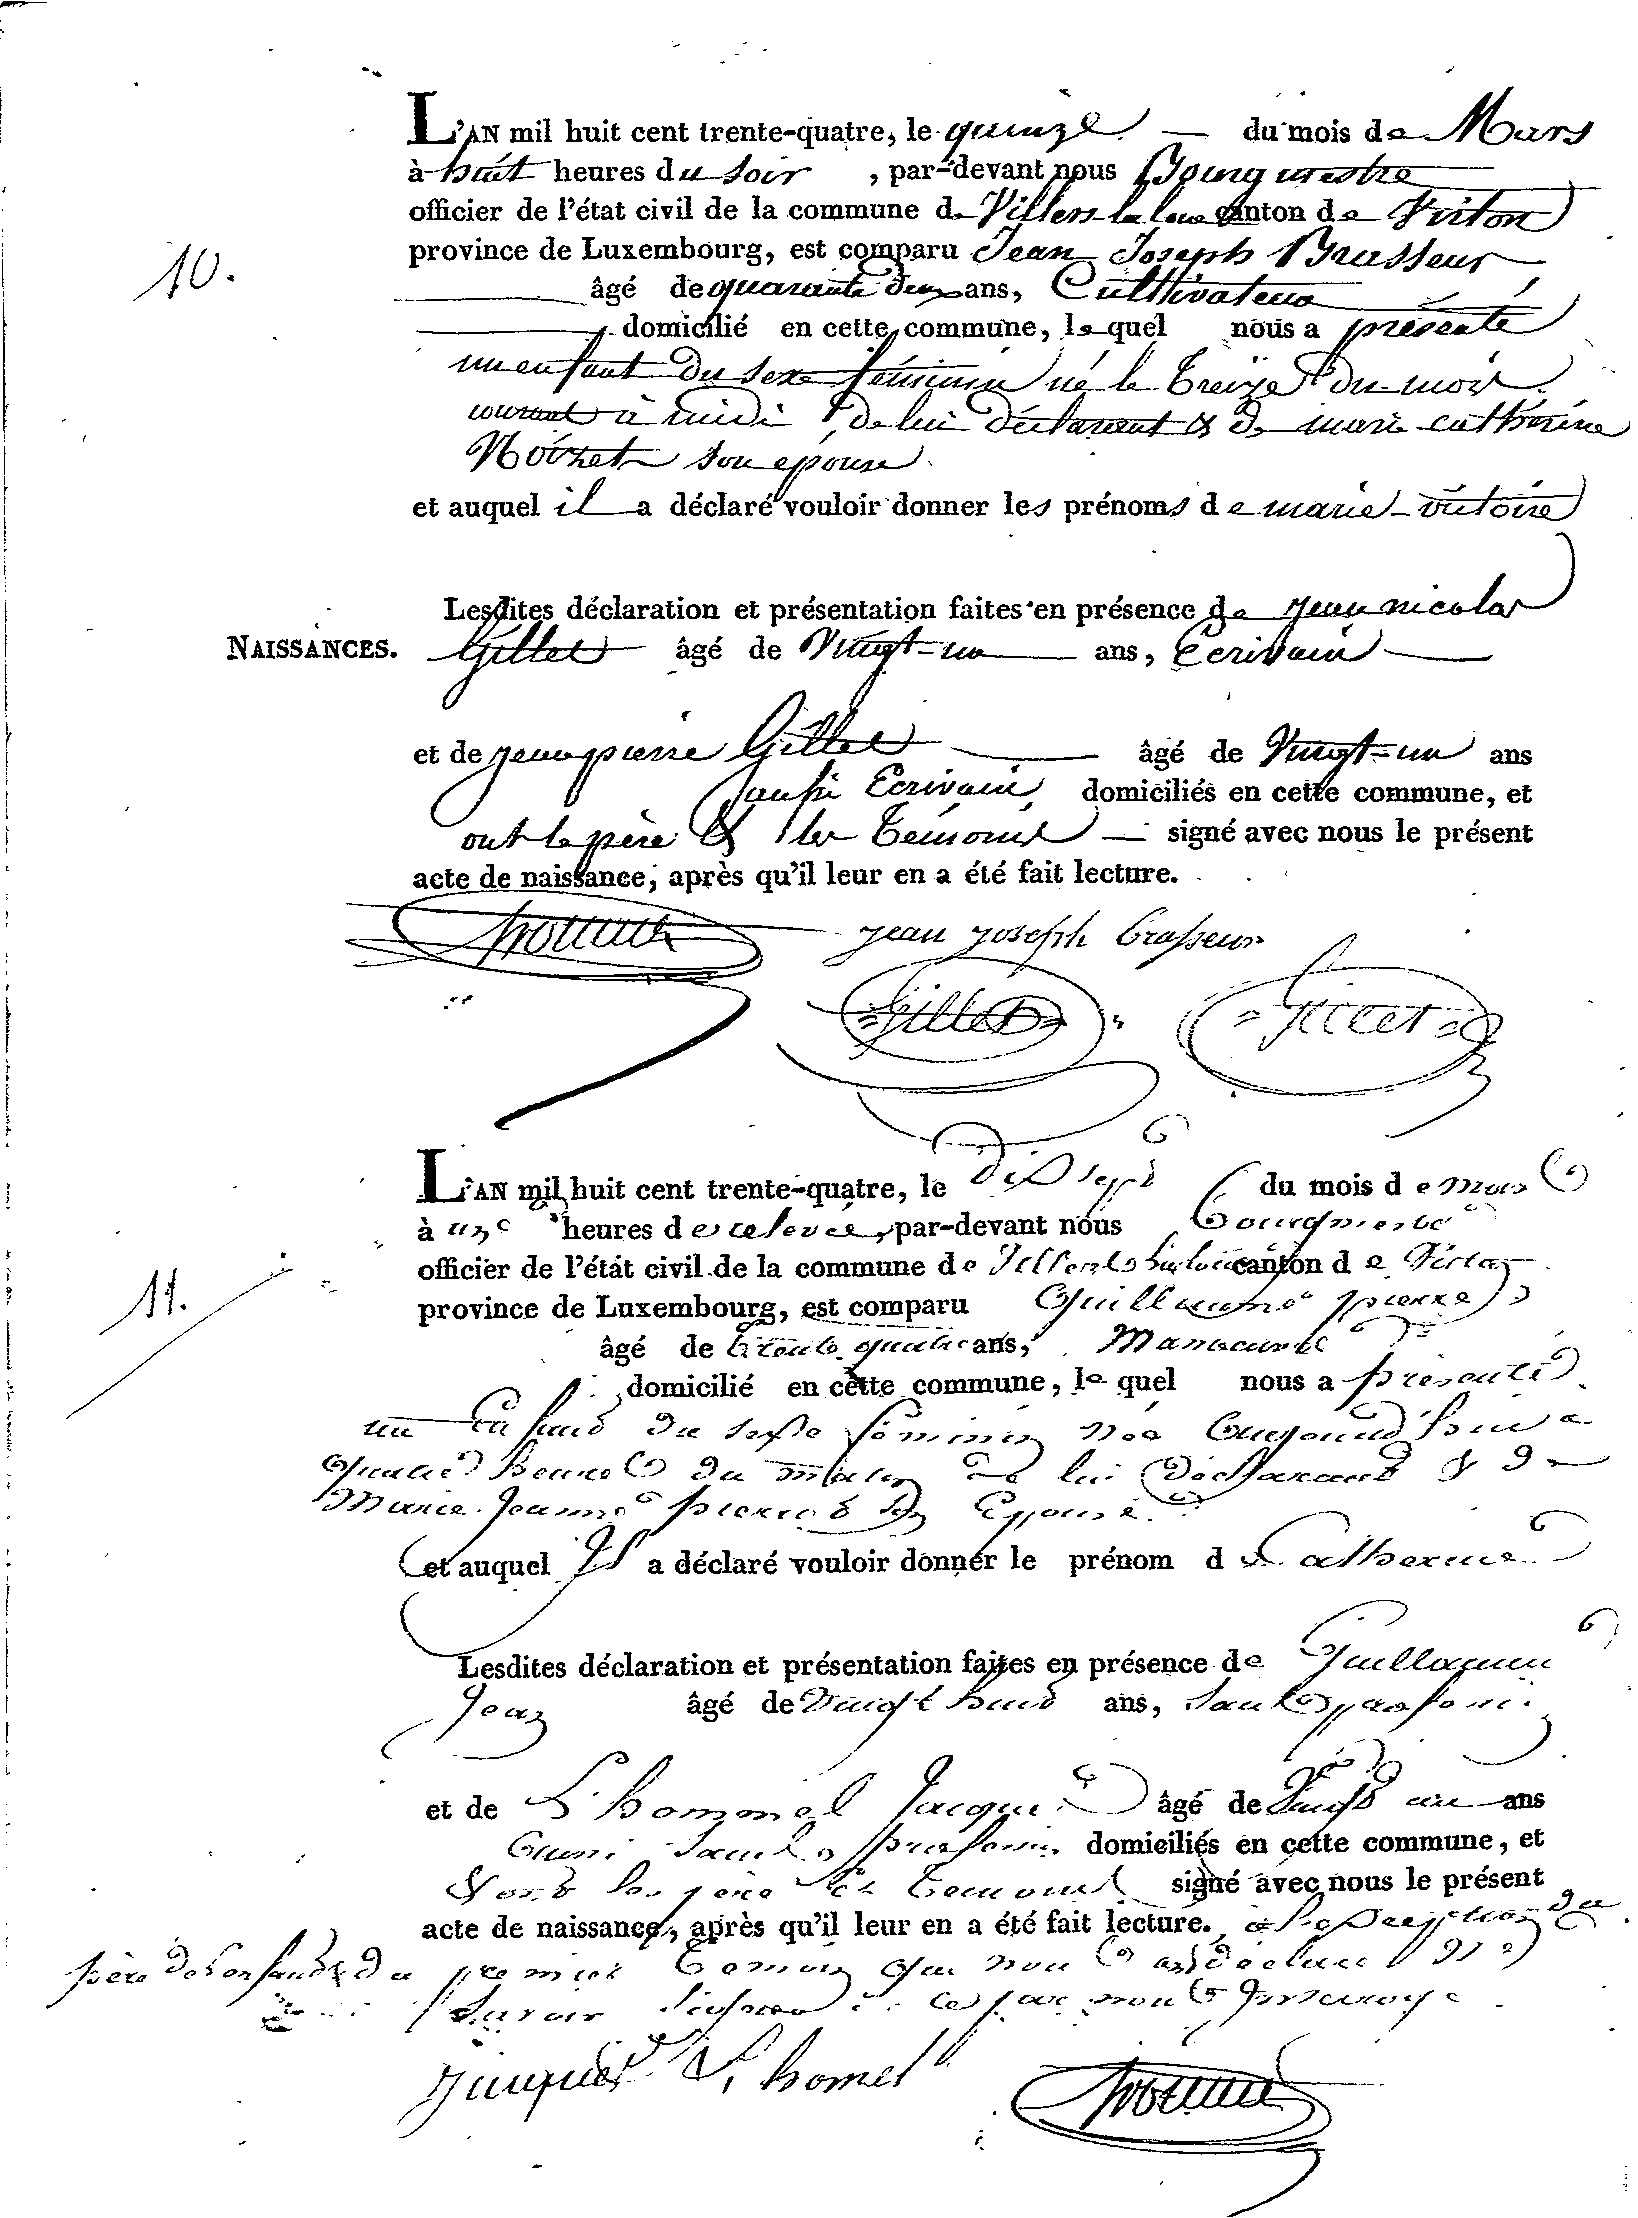 L'AN mil huit cent trente-quatre, le quinze du mois de Mars
à huit heures du soir, par-devant nous Bourgmestre
officier de l'état civil de la commune de Villers la loue canton de Virton
province de Luxembourg, est comparu Jean Joseph Brasseur
10.
âgé de quarante deux ans, Cultivateur
domicilié en cette commune, lequel nous a présenté
un enfant du sexe féminin né le treize du mois
courant à midi, de lui déclarant & de marie catherine
Noizet son epouse
et auquel il a déclaré vouloir donner les prénoms de marie victoire
Lesdites déclaration et présentation faites en présence de jean nicolas
NAISSANCES.
Gillet âgé de Vingt-un ans, Ecrivain
et de jean pierre Gillet âgé de Vingt-un ans
aussi Ecrivain, domiciliés en cette commune, et
ont le père & les témoins signé avec nous le présent
acte de naissance, après qu'il leur en a été fait lecture.
jean joseph brasseur
Gillet Gillet
L'AN mil huit cent trente-quatre, le Dix Sept du mois de Mars
à onze heures de relevée, par-devant nous Bourgmestre
officier de l'état civil de la commune de Villers la loue canton de Virton
11.
province de Luxembourg, est comparu Guillaume pierre
âgé de trente quatre ans, Manoeuvre
domicilié en cette commune, le quel nous a présenté
un Enfant du sexe féminin née aujourd'hui a
quatre heures du matin de lui Déclarant & de
Marie Jeanne pierret son Epouse
et auquel Il a déclaré vouloir donner le prénom de Catherine
Lesdites déclaration et présentation faites en présence de Guillaume
Jean âgé de Vingt huit ans, sans profession
et de L'hommel Jacques âgé de Vingt un ans
aussi sans profession domiciliés en cette commune, et
& ont les père & témoins signé avec nous le présent
acte de naissance, après qu'il leur en a été fait lecture. a l'exception du
père de l'enfant & du premier témoin qui nous ont déclaré ne
savoir signer de ce par nous Interroge
jacques L'homel